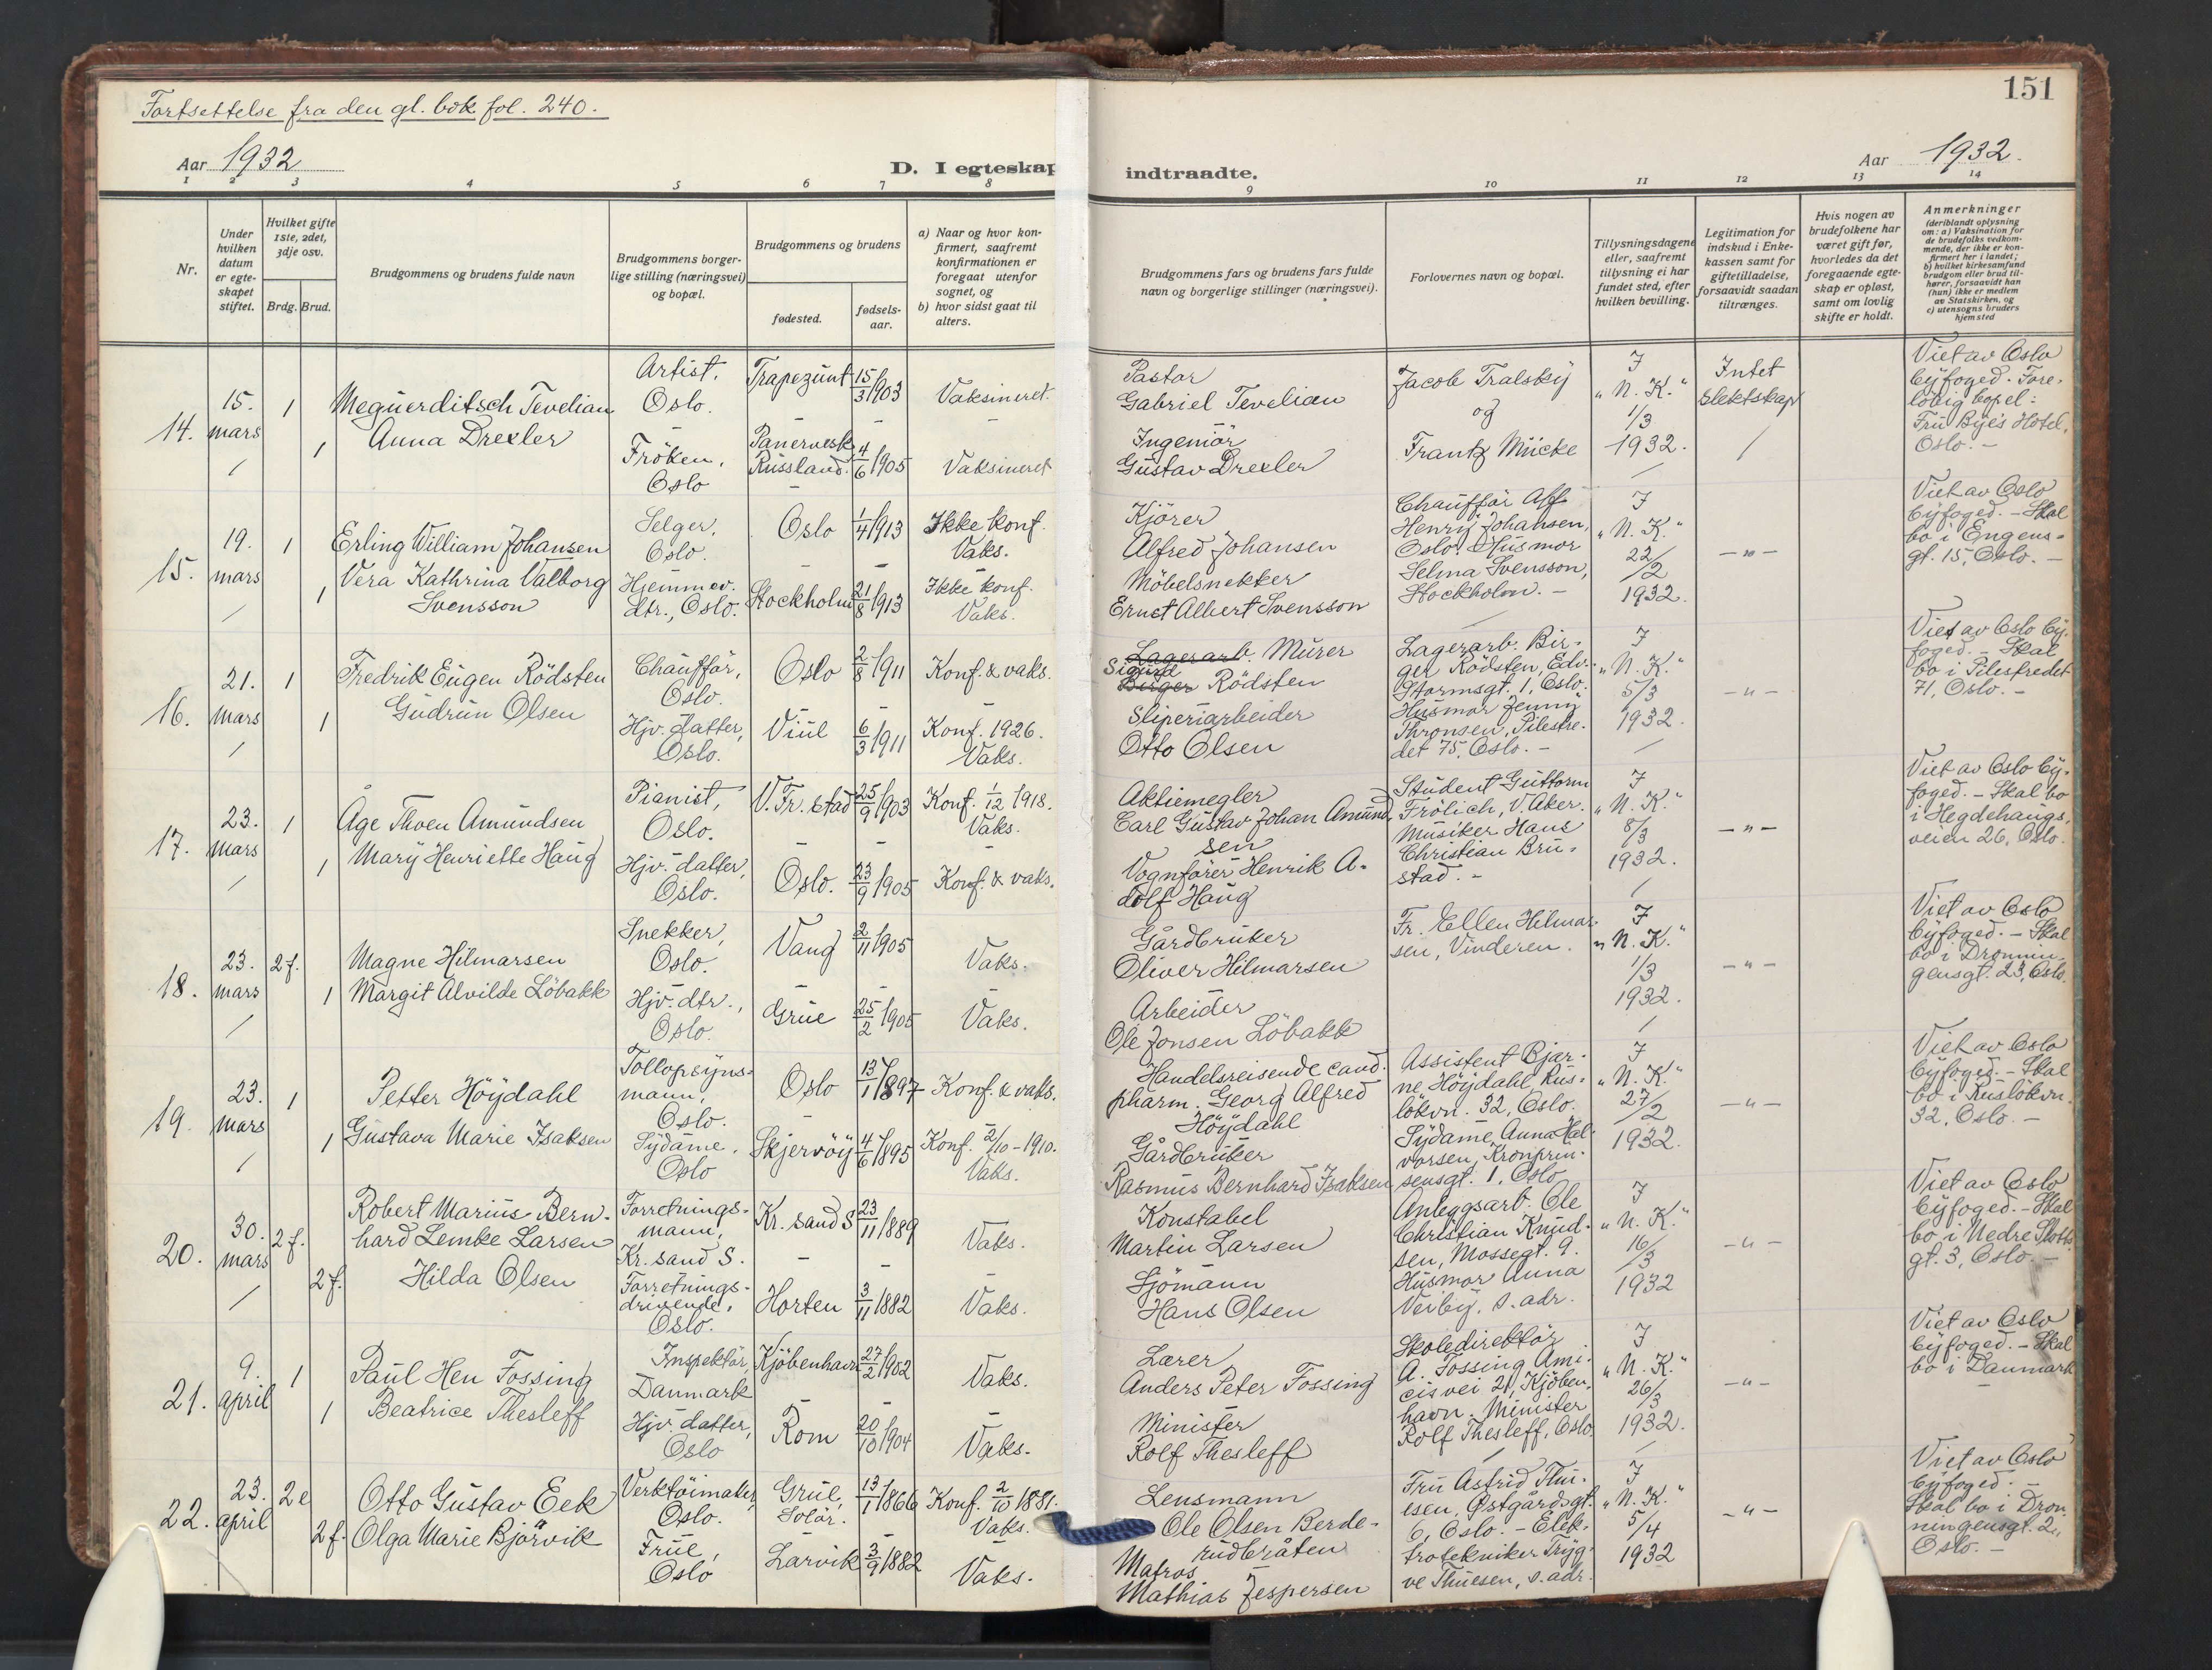 Fortsettelse fra den gl. bok fol. 240.
Aar 1932
D. I egteskap
1 2 3 4 5 6 7 8
Nr.
Under hvilken datum er egteskapet stiftet.
Hvilket gifte 1ste, 2det, 3dje osv.
Brdg. Brud.
Brudgommens og brudens fulde navn
Brudgommens borgerlige stilling (næringsvei) og bopæl.
Brudgommens og brudens
fødested.
fødselsaar.
a) Naar og hvor konfirmert, saafremt konfirmationen er foregaat utenfor sognet, og
b) hvor sidst gaat til alters.
14. 15. mars 1 Meguerditsch Tevelian Artist, Oslo. Trapezunt 15/3 1903 Vaksineret.
1 Anna Drexler Fröken, Oslo Russland. 4/6 1905 Vaksineret
15. 19. mars 1 Erling William Johansen Selger, Oslo. Oslo 1/4 1913 Ikke konf. Vaks.
1 Vera Kathrina Valborg Svensson Hjemmev. dtr., Oslo. Stockholm 21/8 1913 Ikke konf. Vaks.
16. 21. mars 1 Fredrik Eugen Rödsten Chaufför, Oslo. Oslo 2/8 1911 Konf. & vaks.
1 Gudrun Olsen Hjv. datter, Oslo. Viul 6/3 1911 Konf. 1926. Vaks.
17. 23. mars 1 Åge Thoen Amundsen Pianist, Oslo. V. Fr. stad 25/9 1903 Konf. 1/12 1918. Vaks.
1 Mary Henriette Haug Hjv. datter, Oslo. Oslo. 23/9 1905 Konf. & vaks.
18. 23. mars 2 f. Magne Hilmarsen Snekker, Oslo. Vang 2/11 1905 Vaks.
1 Margit Alvilde Löbakk Hjv. dtr., Oslo. Grue 25/2 1905 Vaks.
19. 23. mars 1 Petter Höydahl Tollopsynsmann, Oslo. Oslo 13/1 1897 Konf. & vaks.
1 Gustava Marie Isaksen Sydame, Oslo Skjervöy 4/6 1895 Konf. 2/10-1910. Vaks.
20. 30. mars 2 f. Robert Marius Bernhard Lemke Larsen Forretningsmann, Kr. sand S. Kr. sand S 23/11 1889 Vaks.
2 f. Hilda Olsen Forretningsdrivende, Oslo. Horten 3/11 1882 Vaks.
21. 9. april 1 Paul Hen Fossing Inspektör, Danmark Kjöbenhavn 27/2 1902 Vaks.
1 Beatrice Thesleff Hjv. datter, Oslo Rom 20/10 1904 Vaks.
22. 23. april 2 e Otto Gustav Eek Verktöimaker, Oslo. Grue, Solör. 13/1 1866 Konf. 2/10 1881. Vaks.
2 f. Olga Marie Bjørvik Frue, Oslo Larvik 3/9 1882 Vaks.
151
indtraadte.
Aar 1932.
9 10 11 12 13 14
Brudgommens fars og brudens fars fulde navn og borgerlige stillinger (næringsvei).
Forlovernes navn og bopæl.
Tillysningsdagene eller, saafremt tillysning ei har fundet sted, efter hvilken bevilling.
Legitimation for indskud i Enkekassen samt for giftetilladelse, forsaavidt saadan tiltrænges.
Hvis nogen av brudefolkene har været gift før, hvorledes da det foregaaende egteskap er opløst, samt om lovlig skifte er holdt.
Anmerkninger
(deriblandt oplysning om: a) Vaksination for de brudefolks vedkommende, der ikke er konfirmert her i landet; b) hvilket kirkesamfund brudgom eller brud tilhører, forsaavidt han (hun) ikke er medlem av Statskirken, og c) utensogns bruders hjemsted
Pastor Gabriel Tevelian
Ingeniör Gustav Drexler
Jacob Tralsky og Frantz Mücke
I „N. K.“ 1/3 1932.
Intet slektskap
Viet av Oslo byfoged. Forelöbig bopel: Fru Bye's Hotel, Oslo. -
Kjörer Alfred Johansen
Möbelsnekker Ernst Albert Svensson
Chaufför Alf Henry Johansen, Oslo. Husmor Selma Svensson, Stockholm. -
I „N. K.“ 22/2 1932.
- " -
Viet av Oslo byfoged. - Skal bo i Engensgt. 15, Oslo. -
Lagerarb. Murer Sigurd Birger Rödsten
Sliperiarbeider Otto Olsen
Lagerarb. Birger Rödsten, Edv. Stormsgt. 1, Oslo. Husmor Jenny Thronsen, Pilestredet 75, Oslo. -
I „N. K.“ 5/3 1932.
- " -
Viet av Oslo byfoged. - Skal bo i Pilestredet 71, Oslo. -
Aktiemegler Carl Gustav Johan Amundsen
Vognförer Henrik Adolf Haug
Student Guttorm Frölich, V. Aker. Musiker Hans Christian Brustad. -
I „N. K.“ 8/3 1932.
- " -
Viet av Oslo byfoged. - Skal bo i Hegdehaugsveien 26, Oslo.
Gårdbruker Oliver Hilmarsen
Arbeider Ole Jonsen Löbakk
Fr. Ellen Hilmarsen, Vinderen.
I „N. K.“ 1/3 1932.
- " -
Viet av Oslo byfoged. - Skal bo i Dronningensgt. 23, Oslo.
Handelsreisende cand. pharm. Georg Alfred Höydahl
Gårdbruker Rasmus Bernhard Isaksen
Assistent Bjarne HöydahlРуslökvn. 32, Oslo. Sydame Anna Halvorsen, Kronprinsensgt. 1, Oslo
I „N. K.“ 27/2 1932.
- " -
Viet av Oslo byfoged. - Skal bo i Ruslökvn. 32, Oslo. -
Konstabel Martin Larsen
Sjömann Hans Olsen
Anleggsarb. Ole Christian Knudsen, Mossegt. 9. Husmor Anna Veiby, s. adr.
I „N. K.“ 16/3 1932
- " -
Viet av Oslo byfoged. - Skal bo i Nedre Slottsgt. 3, Oslo. -
Lærer Anders Peter Fossing
Minister Rolf Thesleff
Skoledirektör A. Fossing Amicisvei 21, Kjöbenhavn. Minister Rolf Thesleff, Oslo.
I „N. K.“ 26/3 1932.
- " -
Viet av Oslo byfoged. - Skal bo i Danmark
Lensmann Ole Olsen Berderudbråten
Matros Mathias Jespersen
Fru Astrid Thuesen, Østgårdsgt. 6, Oslo. - Elektrotekniker Trygve Thuesen, s. adr.
I „N. K.“ 5/4 1932
- " -
Viet av Oslo byfoged. - Skal bo i Dronningensgt. 2, Oslo. -